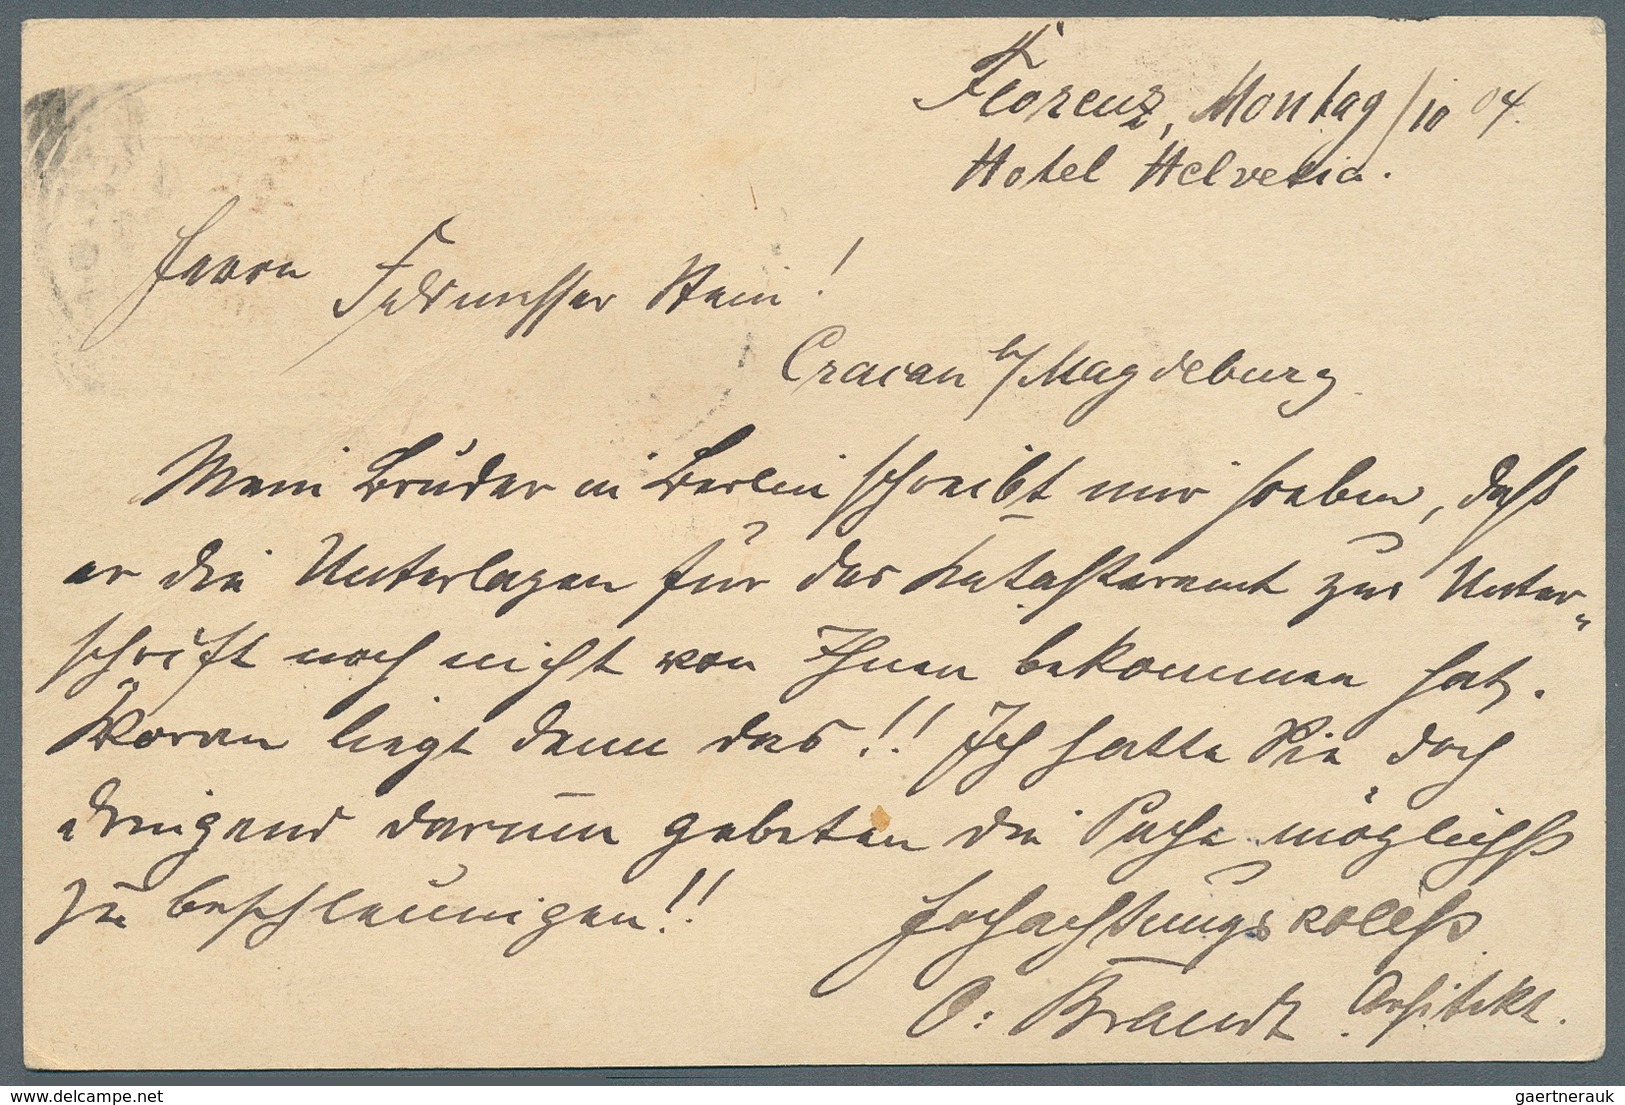 Florenz, Montag /10 04.
Hotel Helvetia.
Herrn Feldmesser Stein!
Cracau b/Magdeburg.
Mein Bruder in Berlin schreibt mir soeben, daß
er die Unterlagen für das Katasteramt zur Unter-
schrift noch nicht von Ihnen bekommen hat.
Woran liegt denn das!! Ich hatte Sie doch
dringend darum gebeten die Sache möglichst
zu beschleunigen!!
Hochachtungsvollst
O: Brandt Architekt.
delcampe.net
gaertnerauk